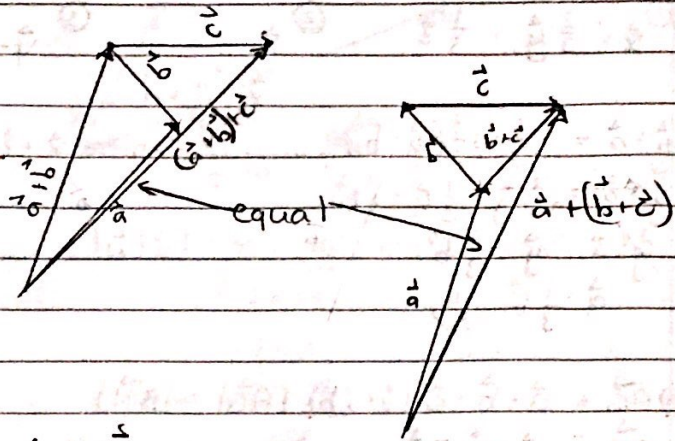 c⃗
b⃗
(a⃗+b⃗)+c⃗
a⃗+b⃗
a⃗
equal
c⃗
b⃗
b⃗+c⃗
a⃗+(b⃗+c⃗)
a⃗